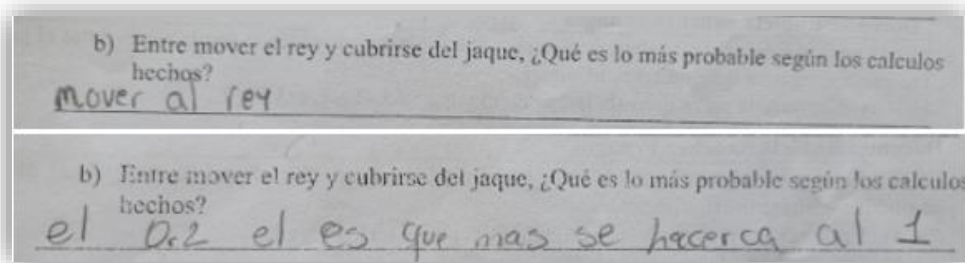 b) Entre mover el rey y cubrirse del jaque, ¿Qué es lo más probable según los calculos
hechos?
mover al rey
b) Entre mover el rey y cubrirse del jaque, ¿Qué es lo más probable según los calculos
hechos?
el 0.2 el es que mas se hacerca al 1